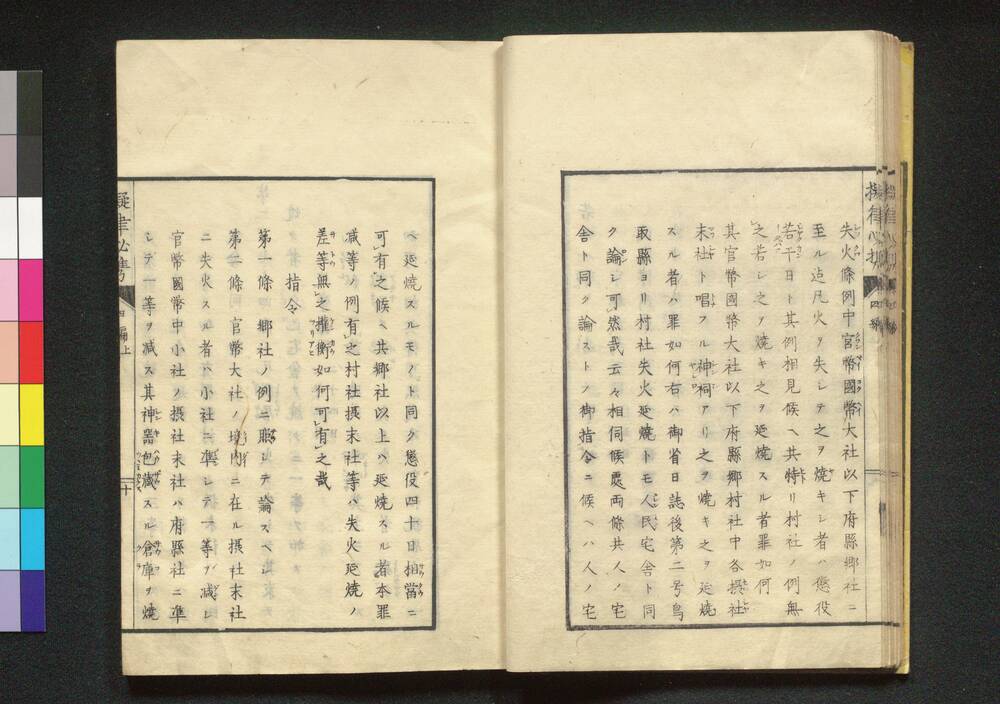 失火條例中官幣國幣大社以下府縣郷社ニ
至ル迠凡火ヲ失シテ之ヲ燒キシ者ハ懲役
若干日ト其例相見候ヘ共特リ村社ノ例無
之若シ之ヲ燒キ之ヲ延燒スル者罪如何
其官幣國幣大社以下府縣郷村社中各摂社
末社ト唱フル神祠アリ之ヲ燒キ之ヲ延燒
スル者ハ罪如何右ハ御省日誌後第二号鳥
取縣ヨリ村社失火延燒トモ人民宅舎ト同
ク論シ可然哉云々相伺候處両條共人ノ宅
舎ト同ク論ストノ御指令ニ候ヘハ人ノ宅
四編
ヘ延燒スルモノト同ク懲役四十日相當ニ
可有之候ヘ共郷社以上ハ延燒スル者本罪
減等ノ例有之村社摂末社等ハ失火延燒ノ
差等無之推衡如何可有之哉
指令
第一條 郷社ノ例ニ照シテ論スヘシ
第二條 官幣大社ノ境内ニ在ル摂社末社
ニ失火スル者ハ小社ニ準シテ一等ヲ減シ
官幣國幣中小社ノ摂社末社ハ府縣社ニ準
シテ一等ヲ減ス其神器包藏スル倉庫ヲ燒
擬律必携 四編上
十